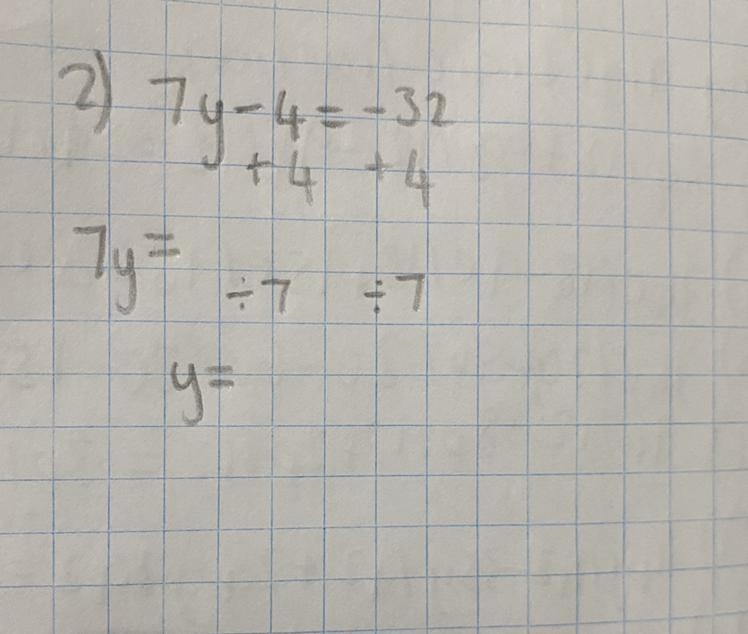 2) 7y - 4 = -32
+ 4 + 4
7y =
÷ 7 ÷ 7
y =